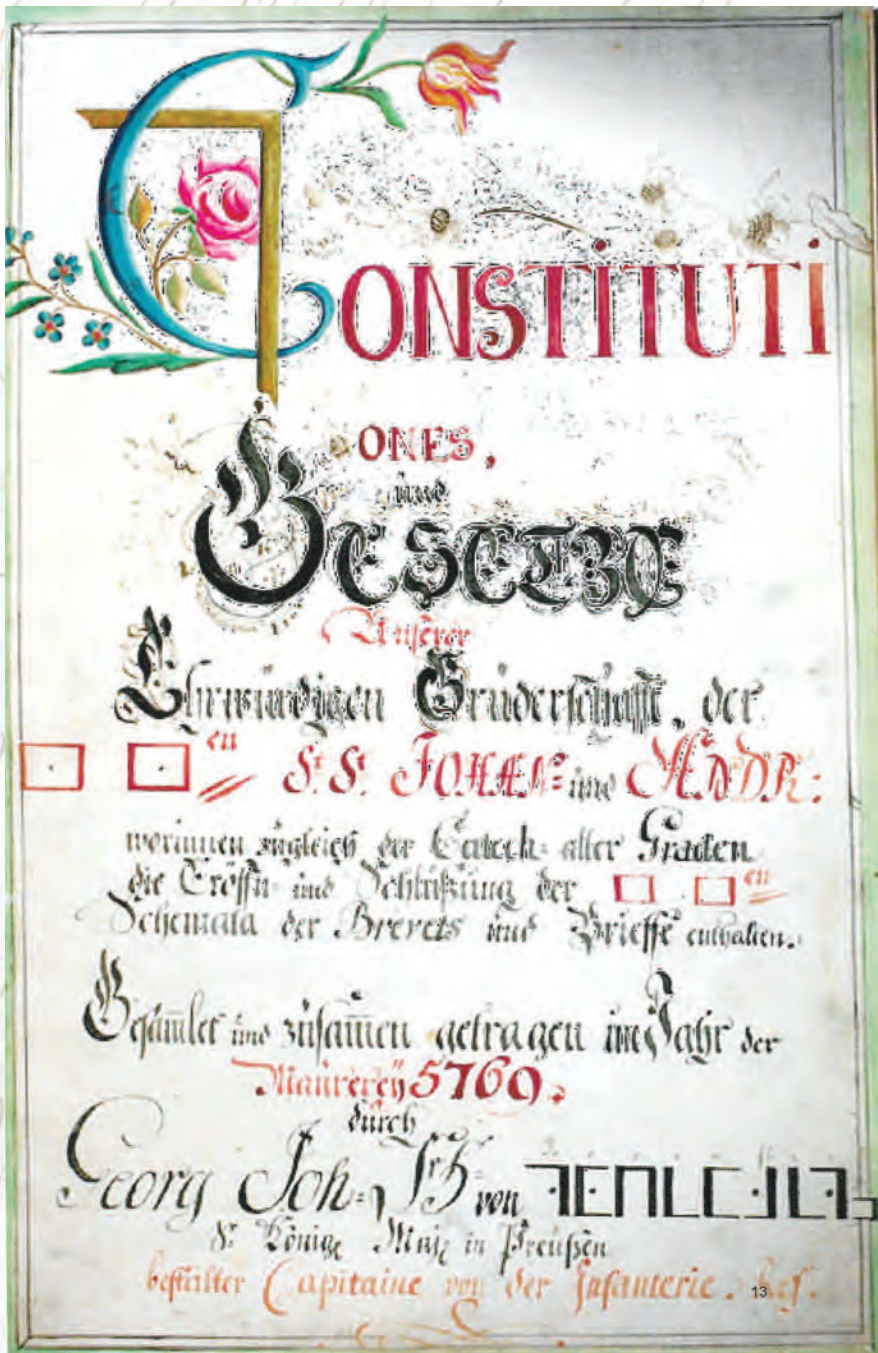 CONSTITUTI
ONES,
und
GESETZE
Unserer
Ehrwürdigen Brüderschafft, der
en St. St. JOHAN: und ANDR:
worinnen zugleich der Catech: aller Graden
die Eröffn- und Schlüßung der en
Schemata der Brevets und Brieffe enthalten.
Gesam̄let und zusam̄en getragen im Jahr der
Maurerey 5760.
durch
Georg Joh: von
Sr. Königl Maj: in Preußen
bestalter Capitaine von der Infanterie.
13